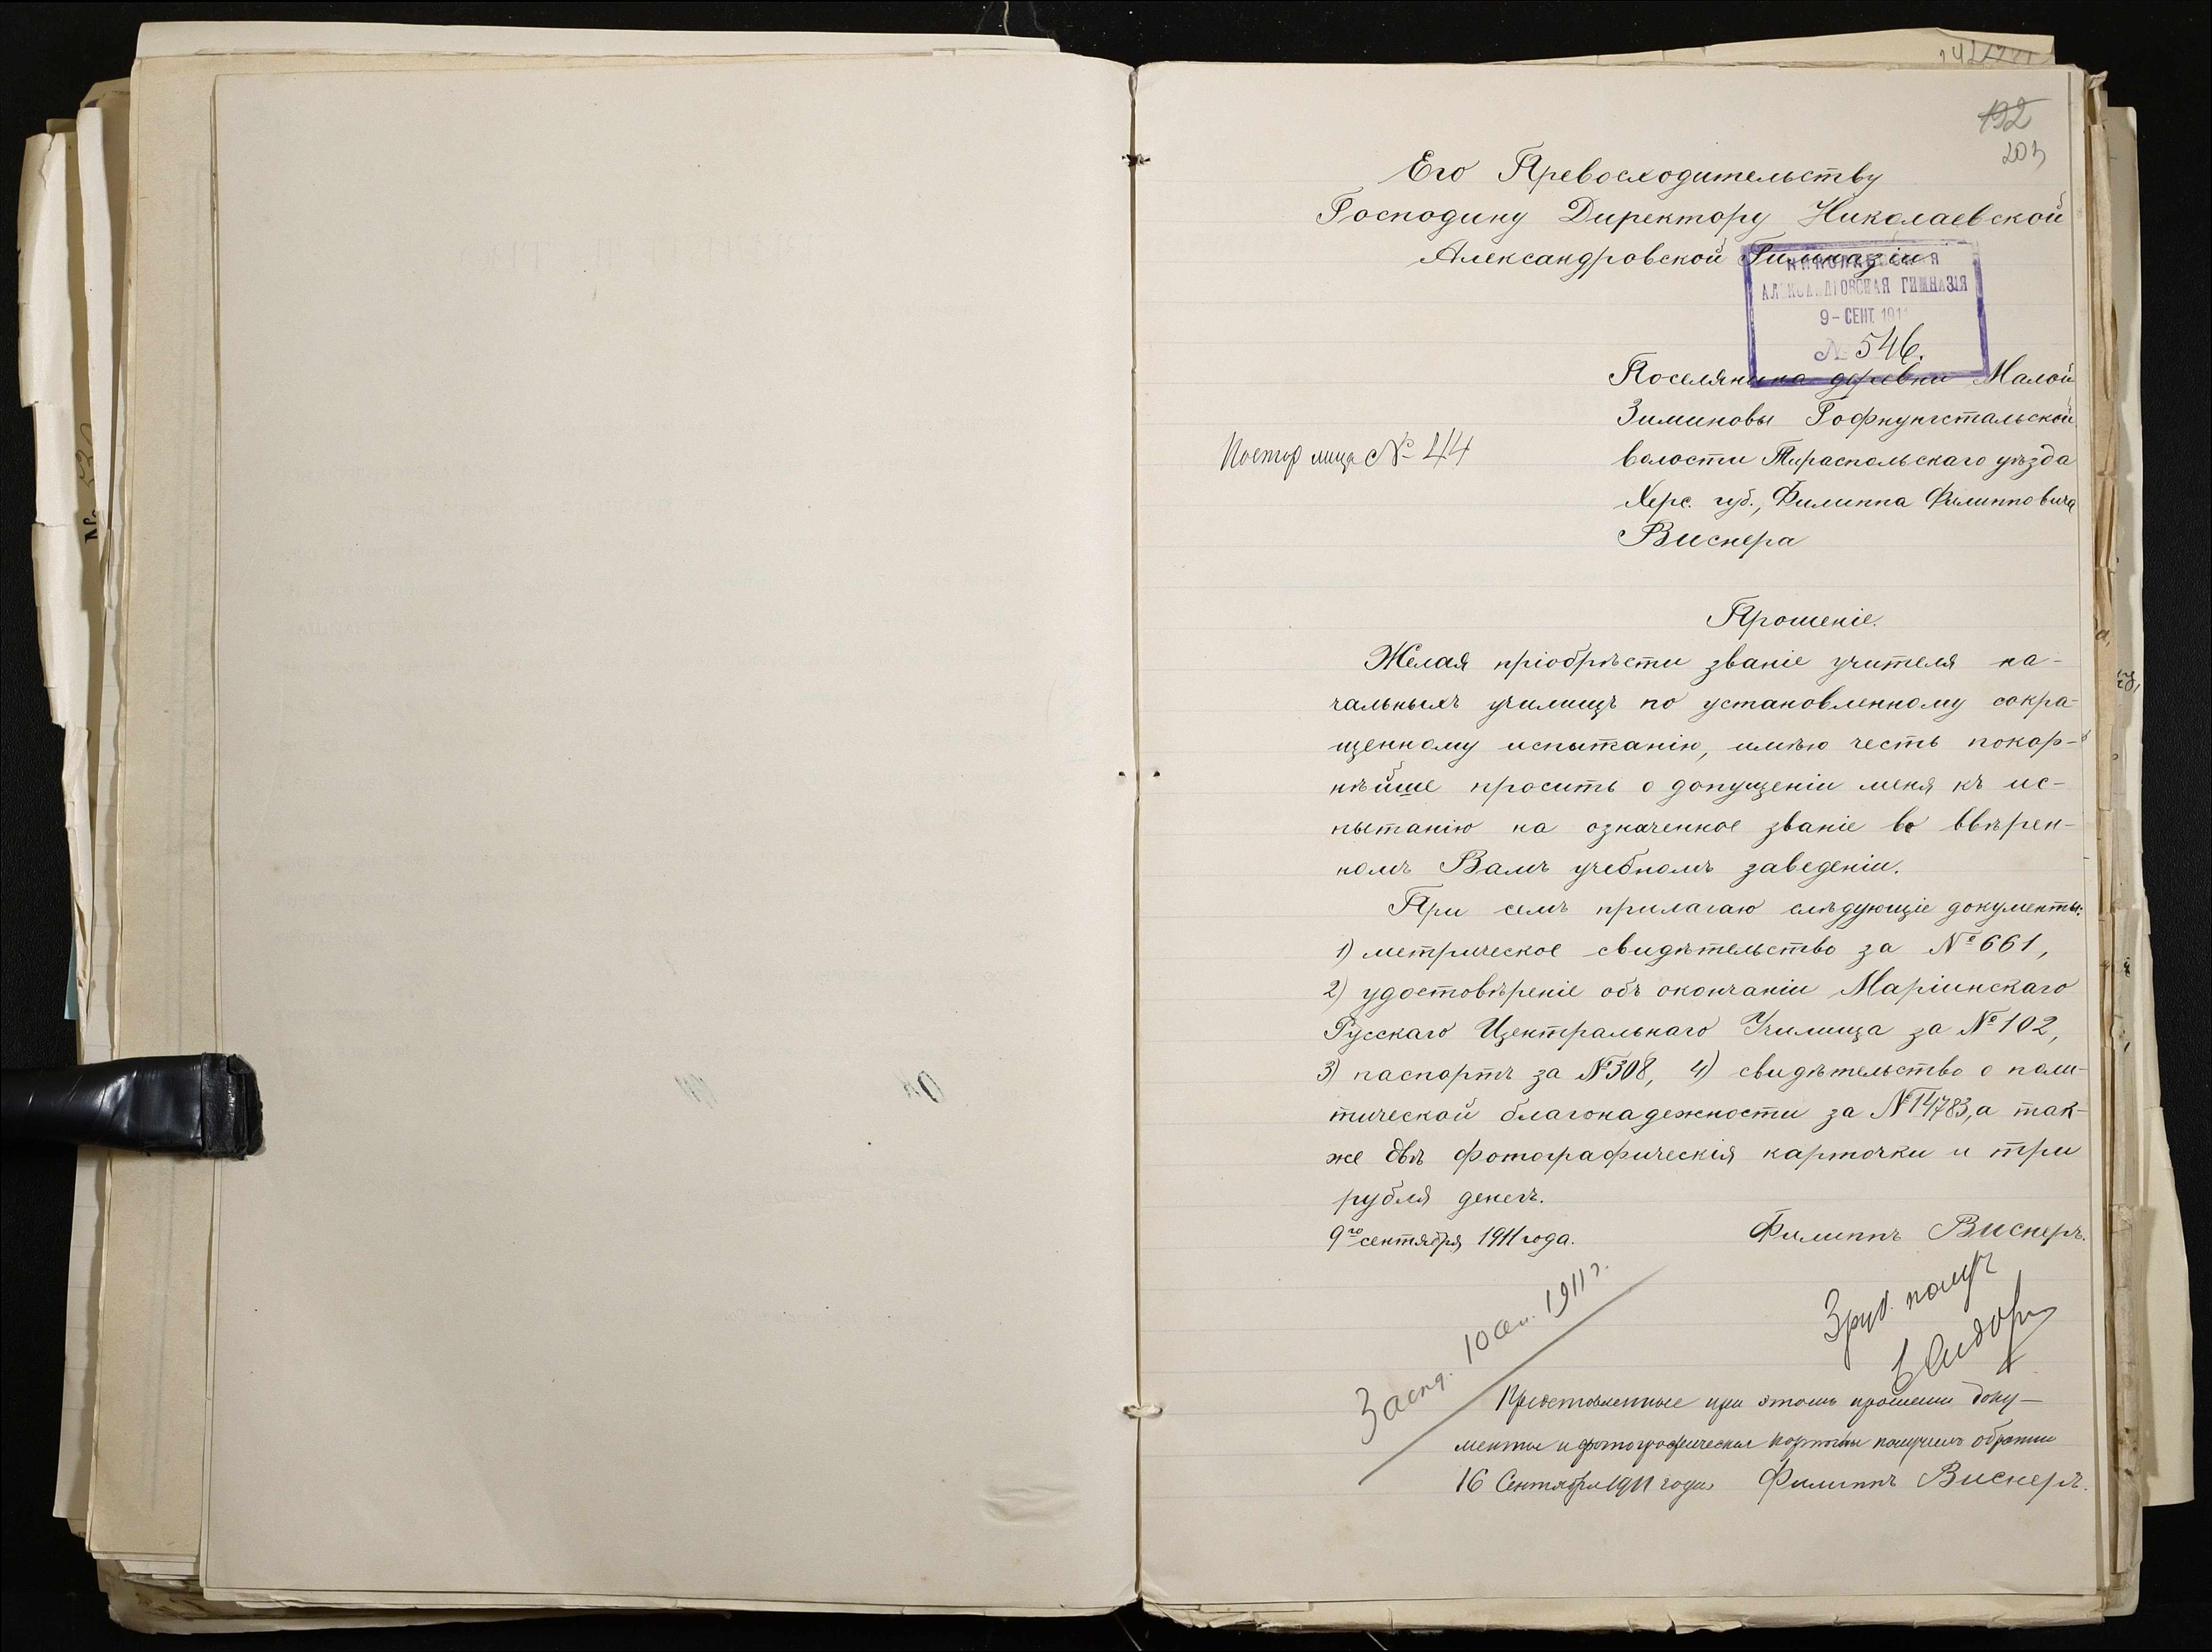 192
203
Его Превосходительству
Господину Директору Николаевской
Александровской Гимназіи
НИКОЛАЕВСКАЯ
АЛЕКСАНДРОВСКАЯ ГИМНАЗІЯ
9 - СЕНТ. 1911
№ 546.
Поселянина деревни Малой
Зиминовы Гофнунгстальской
волости Тираспольскаго уѣзда
Херс. губ., Филиппа Филипповича
Виснера
Постор лица № 44
Прошеніе.
Желая пріобрѣсти званіе учителя на-
чальныхъ училищъ по установленному сокра-
щенному испытанію, имѣю честь покор-
нѣйше просить о допущеніи меня къ ис-
пытанію на означенное званіе во ввѣрен-
номъ Вамъ учебномъ заведеніи.
При семъ прилагаю слѣдующіе документы:
1) метрическое свидѣтельство за № 661,
2) удостовѣреніе объ окончаніи Маріинскаго
Русскаго Центральнаго Училища за № 102,
3) паспортъ за № 308, 4) свидѣтельство о поли-
тической благонадежности за № 14783, а так-
же двѣ фотографическія карточки и три
рубля денегъ.
9го сентября 1911 года. Филиппъ Виснеръ.
3 руб. получ
Засд. 10 Сен. 1911 г.
Представленные при этомъ прошении доку-
менты и фотографическия карточки получилъ обратно
16 Сентября 1911 года Филиппъ Виснеръ.